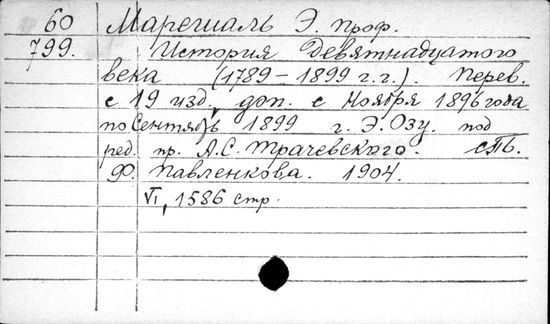 60 Марешаль Э. проф.
799. История Девятнадцатого
века (1789 – 1899 г.г.). Перев.
с 19 изд., доп. с Ноября 1896 года
по Сентябрь 1899 г. Э. Озу. под
ред. пр. А.С. Трачевского. СПб.
Ф. Павленкова. 1904.
VI, 1586 стр.